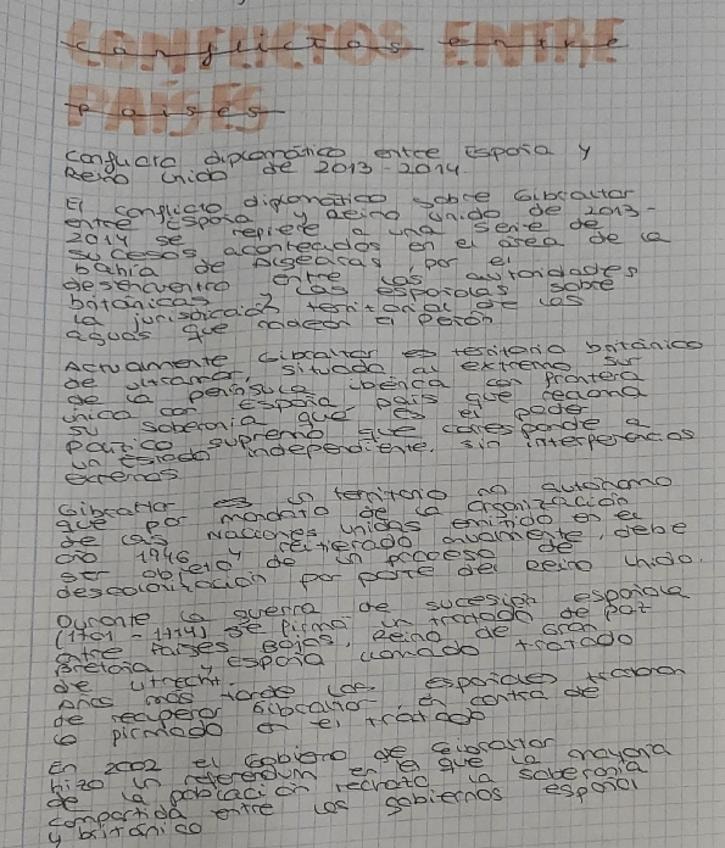 CONFLICTOS ENTRE
PAÍSES
conflicto diplomático entre España y
Reino Unido de 2013-2014.
El conflicto diplomático sobre Gibraltar
entre España y Reino Unido de 2013-
2014 se refiere a una serie de
sucesos acontecidos en el área de la
bahía de Algeciras, por el
desencuentro entre las autoridades
británicas y las españolas sobre
la jurisdicción territorial de las
aguas que rodean el Peñón
Actualmente Gibraltar es territorio británico
de ultramar, situado al extremo sur
de la península ibérica con frontera
única con España país que reclama
su soberonia que es el poder
político supremo que corresponde a
un estado independiente, sin interferencias
externas
Gibraltar es un territorio no autónomo
que por mandato de la Organización
de las Naciones Unidas emitido en el
año 1946 y reiterado anualmente, debe
ser objeto de un proceso de
descolonización por parte del Reino Unido.
Durante la guerra de sucesión española
(1701-1714) se firmó un tratado de paz
entre Países Bajos, Reino de Gran
Bretaña y España llamado tratado
de Utrecht.
Años más tarde los españoles trataron
de recuperar Gibraltar, en contra de
lo firmado en el tratado
En 2002 el Gobierno de Gibraltar
hizo un referendum en el que la mayoría
de la población rechazó la soberonia
compartida entre los gobiernos español
y británico